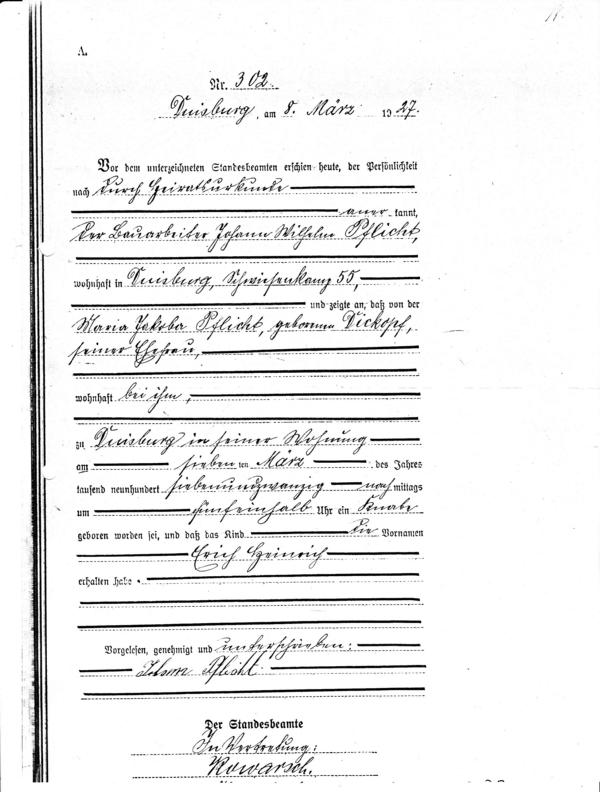 11.
A.
Nr. 302.
Duisburg, am 8. März 1927.
Vor dem unterzeichneten Standesbeamten erschien heute, der Persönlichkeit
nach durch Heiratsurkunde
aner kannt,
der Bauarbeiter Johann Wilhelm Pflicht,
wohnhaft in Duisburg, Schwiesenkamp 55,
und zeigte an, daß von der
Maria Jakoba Pflicht, geborenen Dickopf,
seiner Ehefrau,
wohnhaft bei ihm,
zu Duisburg in seiner Wohnung
am sieben ten März des Jahres
tausend neunhundert siebenundzwanzig nachmittags
um fünfeinhalb Uhr ein Knabe
geboren worden sei, und daß das Kind die Vornamen
Erich Heinrich
erhalten habe.
Vorgelesen, genehmigt und unterschrieben:
Johann Pflicht
Der Standesbeamte
In Vertretung:
Kowarsch.